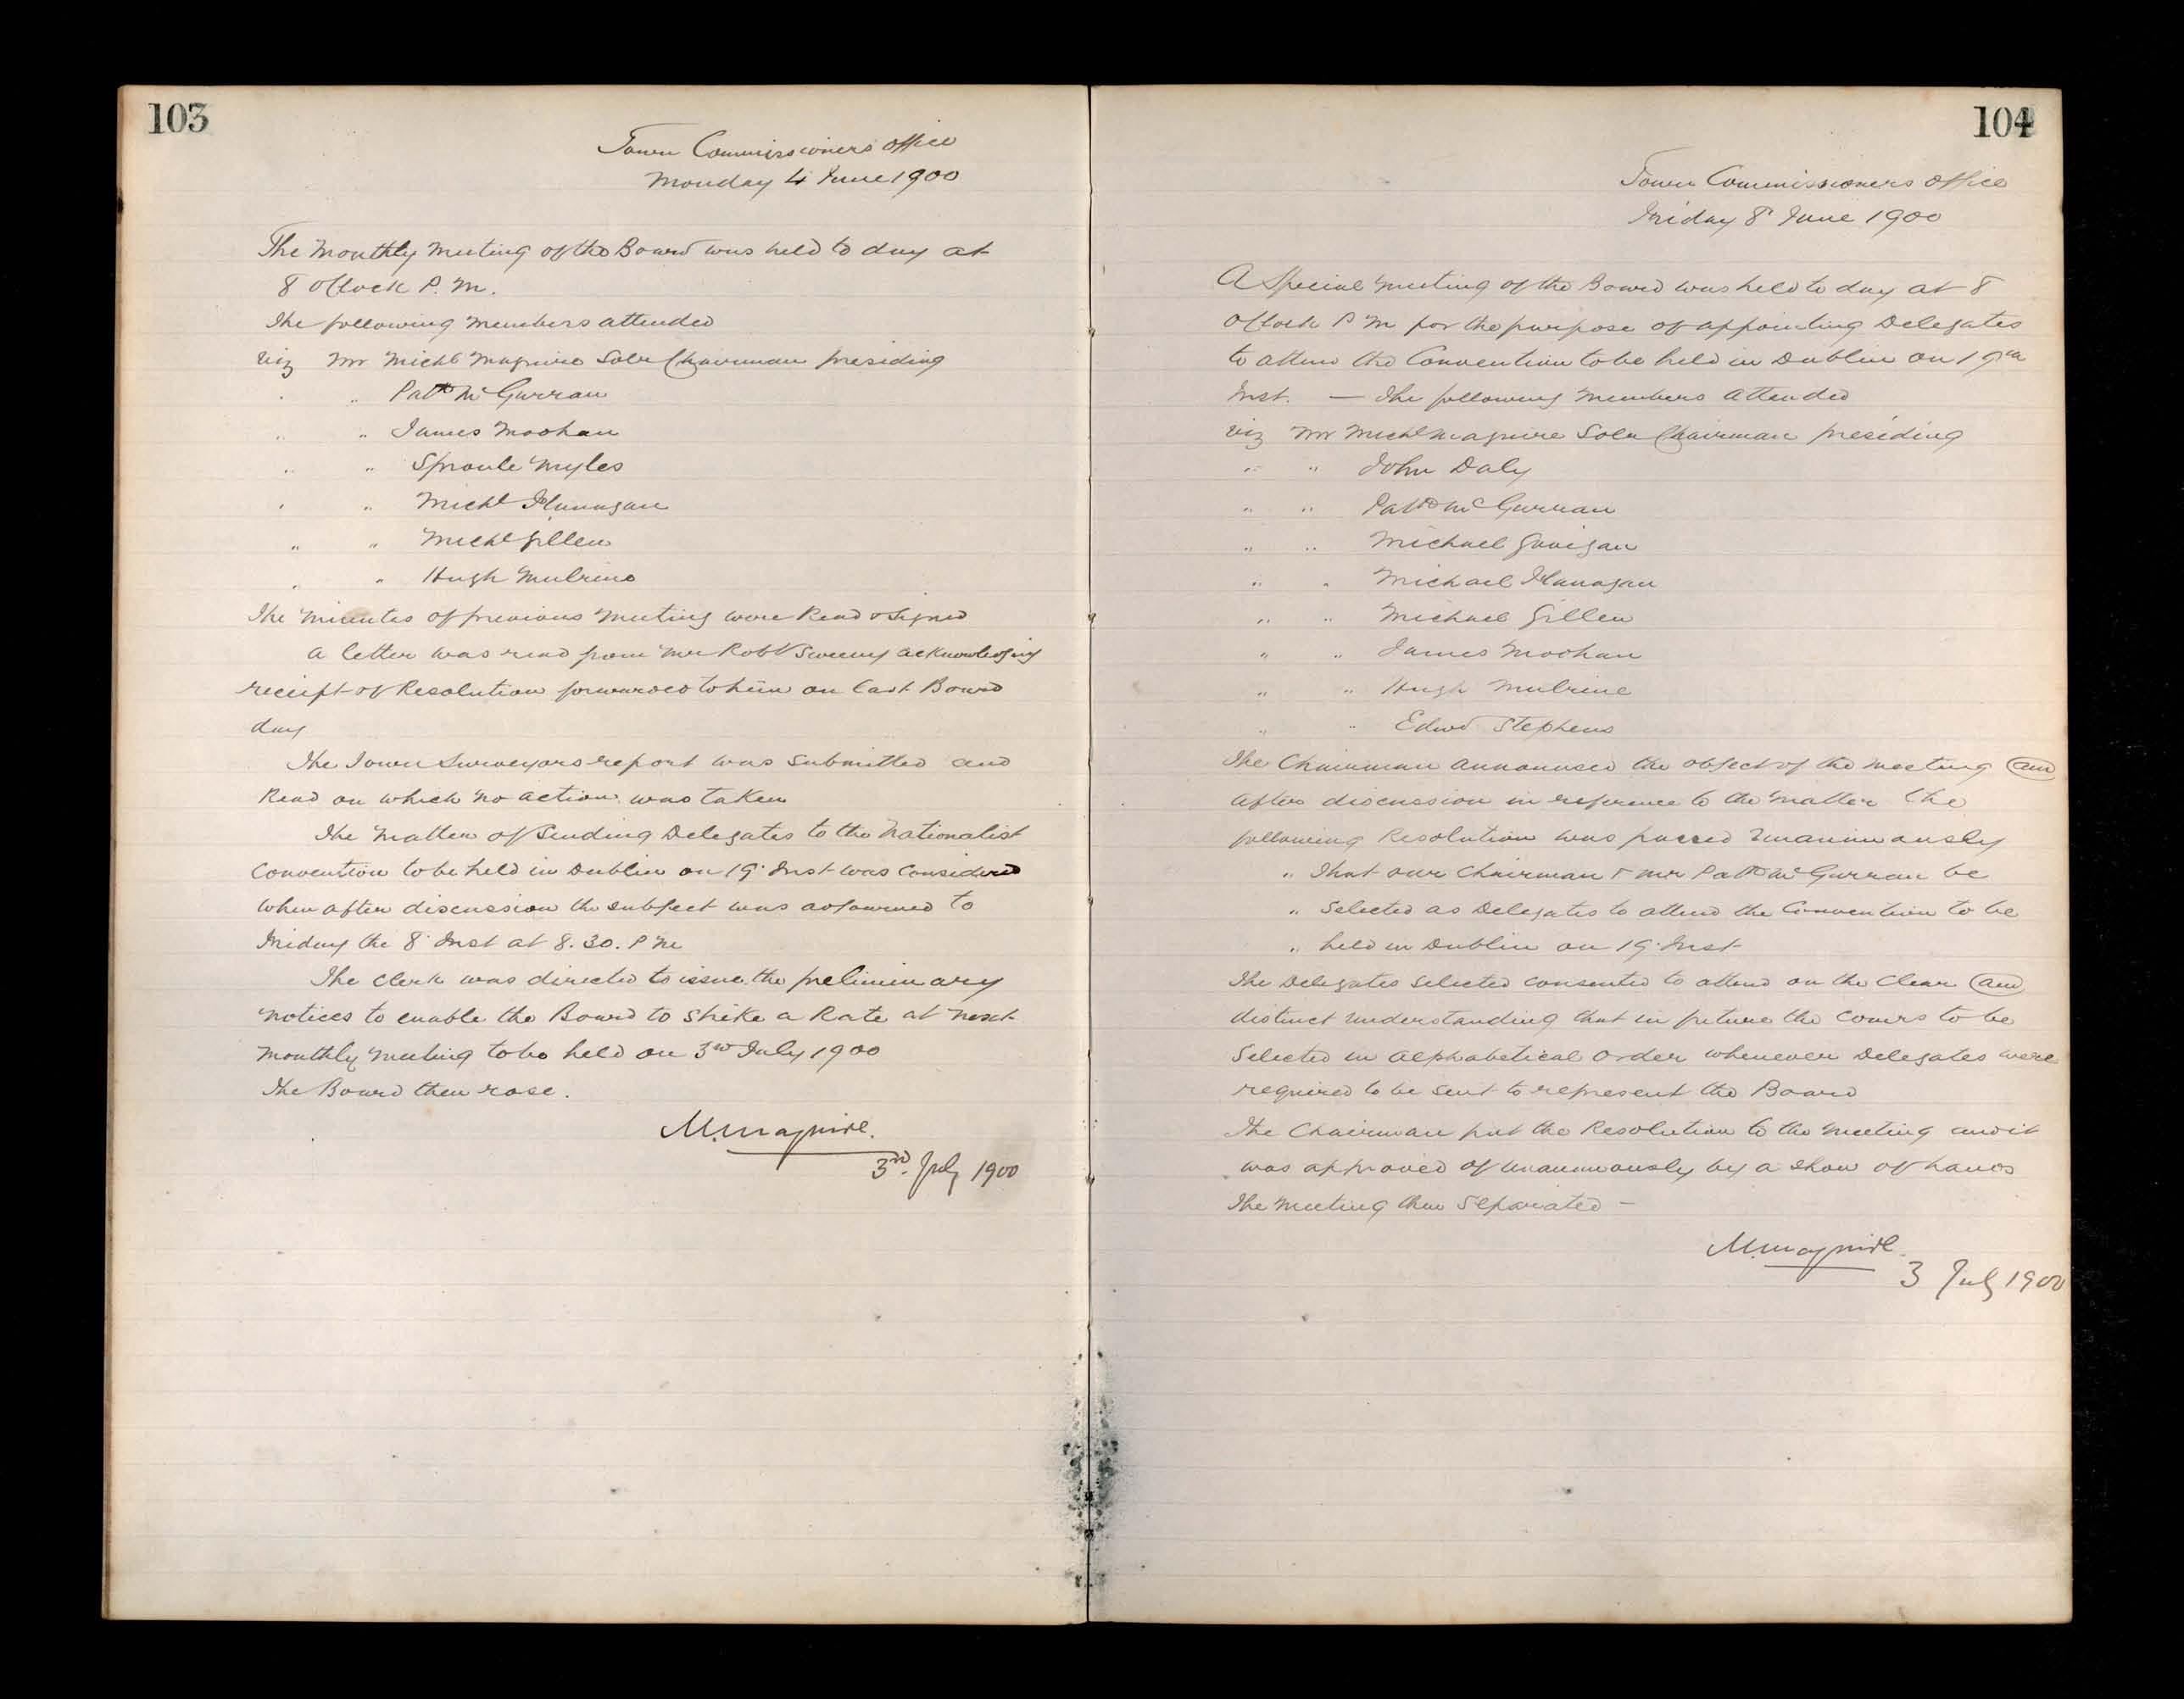 103
Town Commissioners office
Monday 4 June 1900
The Monthly Meeting of the Board was held to day at
8 oClock P. M.
The following Members attended
viz Mr Michl Maguire Solr Chairman presiding
" Patk McGurran
" James Moohan
" " Sproule Myles
" " Michl Flanagan
" " Michl Gillen
" " Hugh Mulrine
The Minutes of previous Meeting were Read & Signed
A letter was read from Mr Robt Sweeny acknowledging
receipt of Resolution forwarded to him on last Board
day
The Town Surveyors report was submitted and
Read on which no action was taken
The Matter of Sending Delegates to the Nationalist
Convention to be held in Dublin on 19 Inst was Considered
when after discussion the subject was adjourned to
Friday the 8 Inst at 8.30. P M
The Clerk was directed to issue the preliminary
notices to enable the Board to Strike a Rate at next
Monthly Meeting to be held on 3rd July 1900
The Board then rose.
M. Maguire.
3rd July 1900
104
Town Commissioners Office
Friday 8 June 1900
A Special Meeting of the Board was held to day at 8
OClock P M for the purpose of appointing Delegates
to attend the Convention to be held in Dublin on 19th
Inst. — The following Members attended
viz Mr Michl Maguire Solr Chairman presiding
" " John Daly
" " Patk McGurran
" " Michael Gavigan
" " Michael Flanagan
" " Michael Gillen
" " James Moohan
" " Hugh Mulrine
" " Edwd Stephens
The Chairman announced the object of the Meeting and
after discussion in reference to the Matter the
following Resolution was passed unanimously
" That our Chairman & Mr Patk McGurran be
" Selected as Delegates to attend the Convention to be
" held in Dublin on 19 Inst
The Delegates selected consented to attend on the Clear and
distinct understanding that in future the Comrs to be
Selected in Alphabetical Order whenever Delegates were
required to be sent to represent the Board
The Chairman put the Resolution to the Meeting and it
was approved of unanimously by a show of hands
The Meeting then Separated —
M. Maguire.
3 July 1900